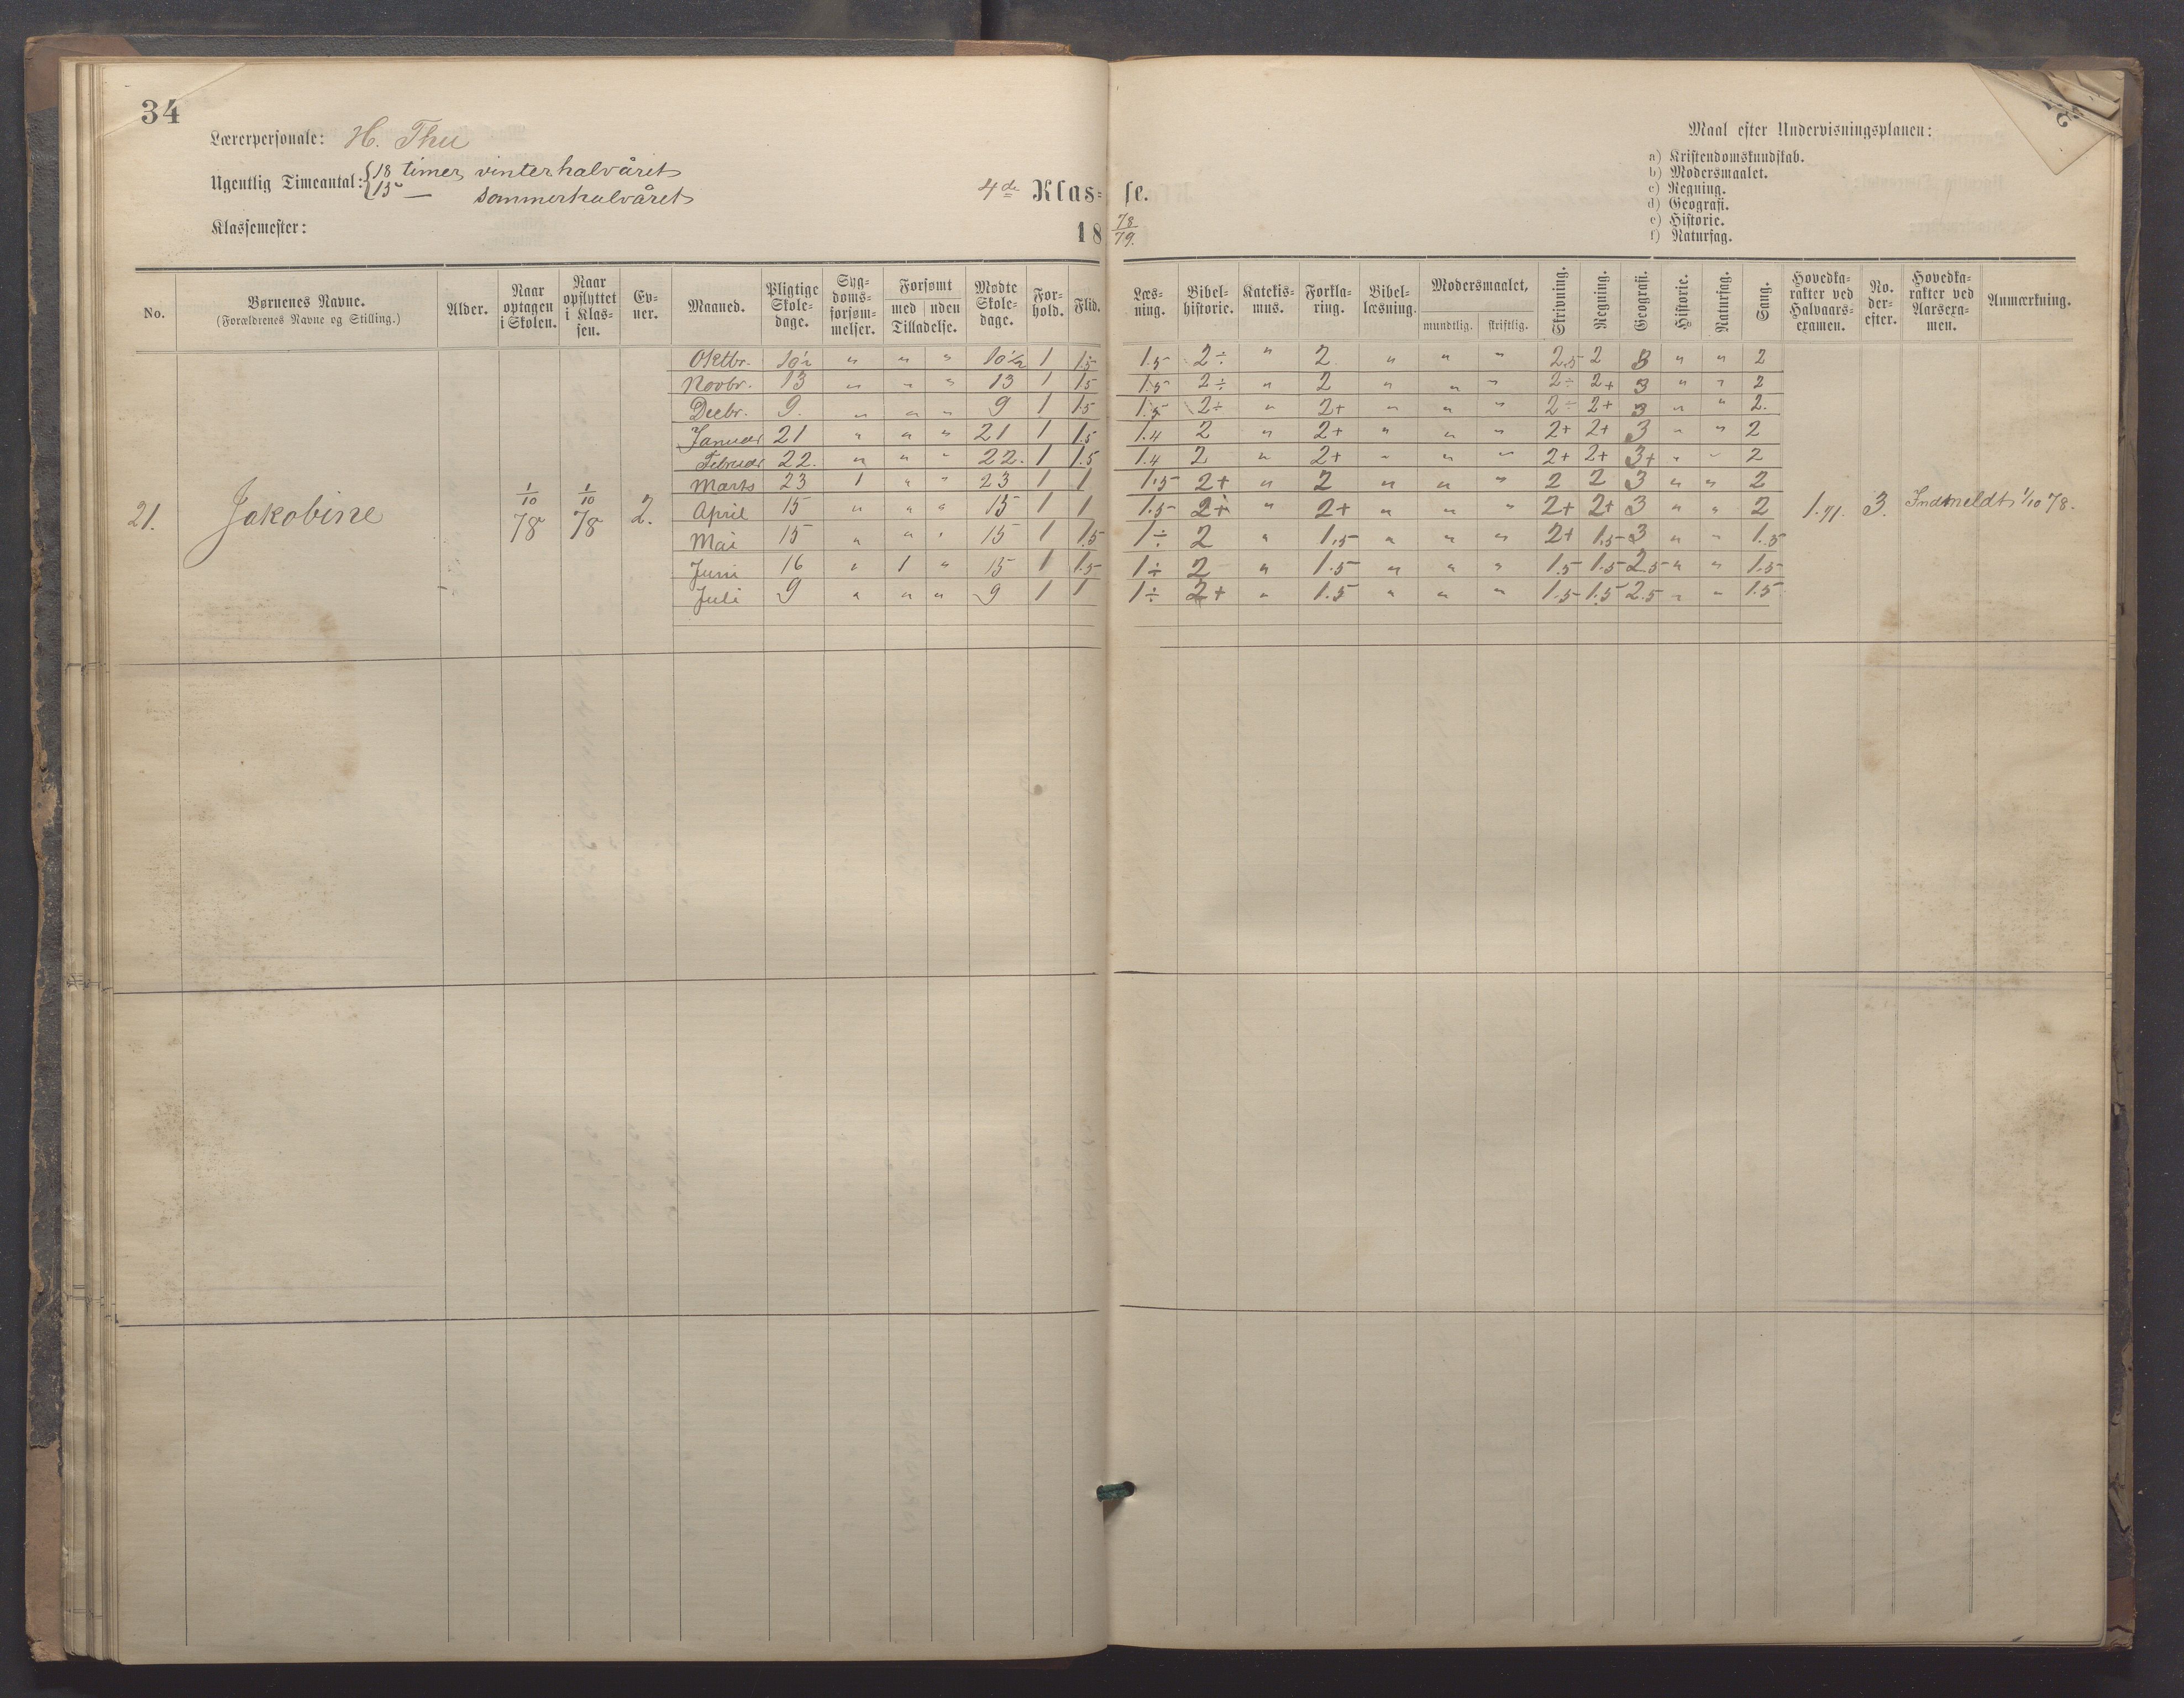 34
Lærerpersonale: H. Thu
Ugentlig Timeantal: {18 timer vinterhalvåret
{15 — sommerhalvåret
Klassemester:
4de Klas= se.
18 78/79.
Maal efter Undervisningsplanen:
a) Kristendomskundskab.
b) Modersmaalet.
c) Regning.
d) Geografi.
e) Historie.
f) Naturfag.
No. Børnenes Navne. (Forældrenes Navne og Stilling.) Alder. Naar optagen i Skolen. Naar opflyttet i Klas= sen. Ev= ner. Maaned. Pligtige Skole= dage. Syg= doms= forsøm= melser. Forsømt med uden Tilladelse. Mødte Skole= dage. For= hold. Flid. Læs= ning. Bibel= historie. Katekis= mus. Forkla= ring. Bibel= læsning. Modersmaalet, mundtlig. skriftlig. Skrivning. Regning. Geografi. Historie. Naturfag. Sang. Hovedka= rakter ved Halvaars= examen. No. der= efter. Hovedka= rakter ved Aarsexa= men. Anmærkning.
Oktbr. 10½ " " " 10½ 1 1.5 1.5 2÷ " 2 " " " 2.5 2 3 " " 2
Novbr. 13 " " " 13 1 1.5 1.5 2÷ " 2 " " " 2÷ 2+ 3 " " 2
Decbr. 9. " " " 9 1 1.5 1.5 2÷ " 2+ " " " 2÷ 2+ 3 " " 2.
Januar 21 " " " 21 1 1.5 1.4 2 " 2+ " " " 2+ 2+ 3 " " 2
Februar 22. " " " 22. 1 1.5 1.4 2 " 2+ " " " 2+ 2+ 3+ " " 2
Marts 23 1 " " 23 1 1 1.5 2+ " 2 " " " 2 2 3 " " 2
21. Jakobine 1/10 78 1/10 78 2. April 15 " " " 15 1 1 1.5 2+ " 2+ " " " 2+ 2+ 3 " " 2 3. Indmeldt 1/10 78.
Mai 15 " " " 15 1 1.5 1÷ 2 " 1.5 " " " 2+ 1.5 3 " " 1.5
Juni 16 " 1 " 15 1 1.5 1÷ 2 " 1.5 " " " 1.5 1.5 2.5 " " 1.5
Juli 9 " " " 9 1 1 1÷ 2+ " 1.5 " " " 1.5 1.5 2.5 " " 1.5